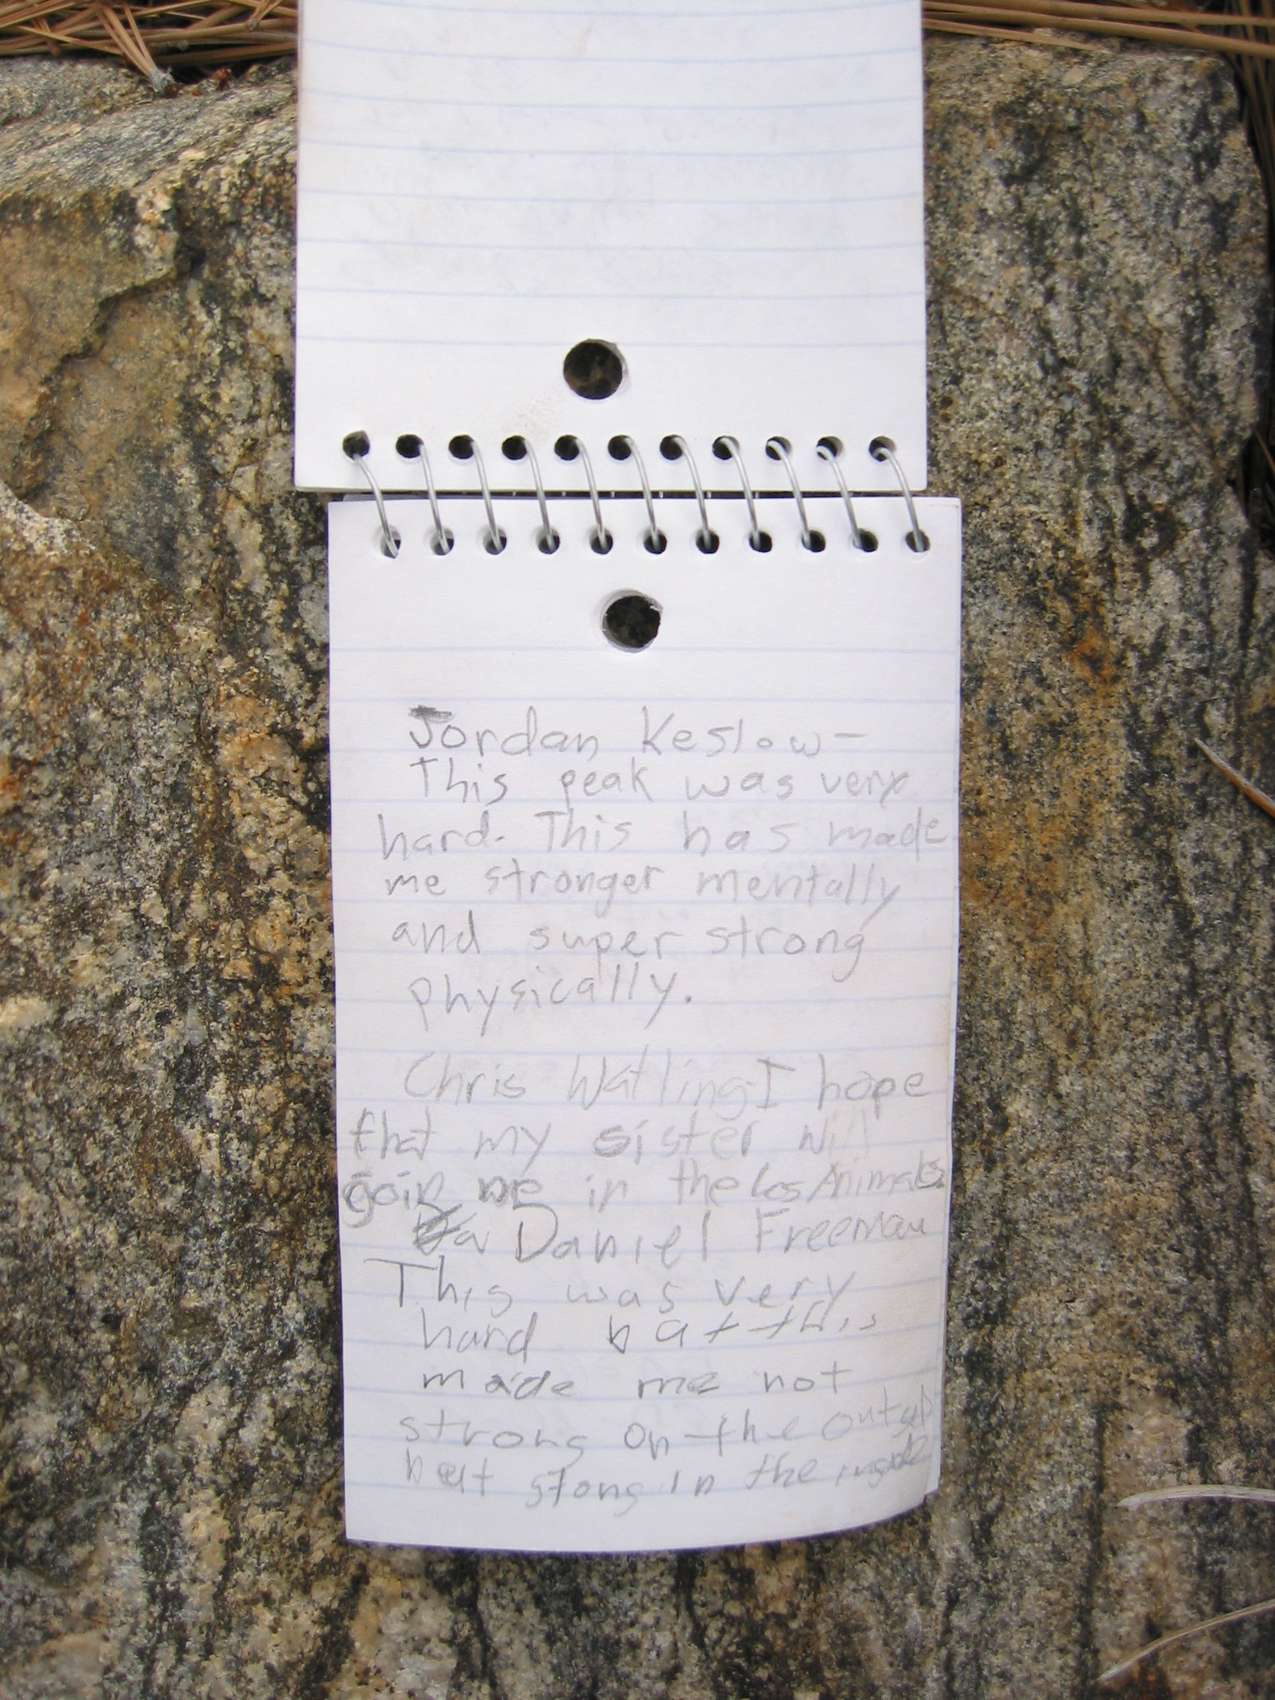 Jordan Keslow-
This peak was very
hard. This has made
me stronger mentally
and super strong
physically.
Chris Watling-I hope
that my sister will
goin me in the Los Animales
Da Daniel Freeman
This was very
hard bat this
made me not
strong on the outsid
but stong in the inside